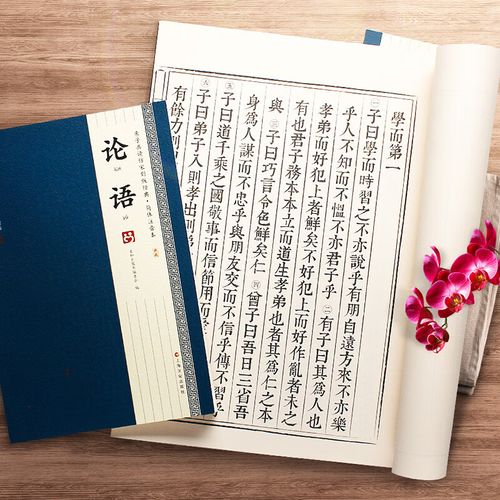 學而第一
㊀子曰學而時習之不亦說乎有朋自遠方來不亦樂
乎人不知而不慍不亦君子乎㊁有子曰其爲人也
孝弟而好犯上者鮮矣不好犯上而好作亂者未之
有也君子務本本立而道生孝弟也者其爲仁之本
與㊂子曰巧言令色鮮矣仁㊃曾子曰吾日三省吾
身爲人謀而不忠乎與朋友交而不信乎傳不習乎
㊄子曰道千乘之國敬事而信節用而
㊅子曰弟子入則孝出則弟
有餘力則
论语